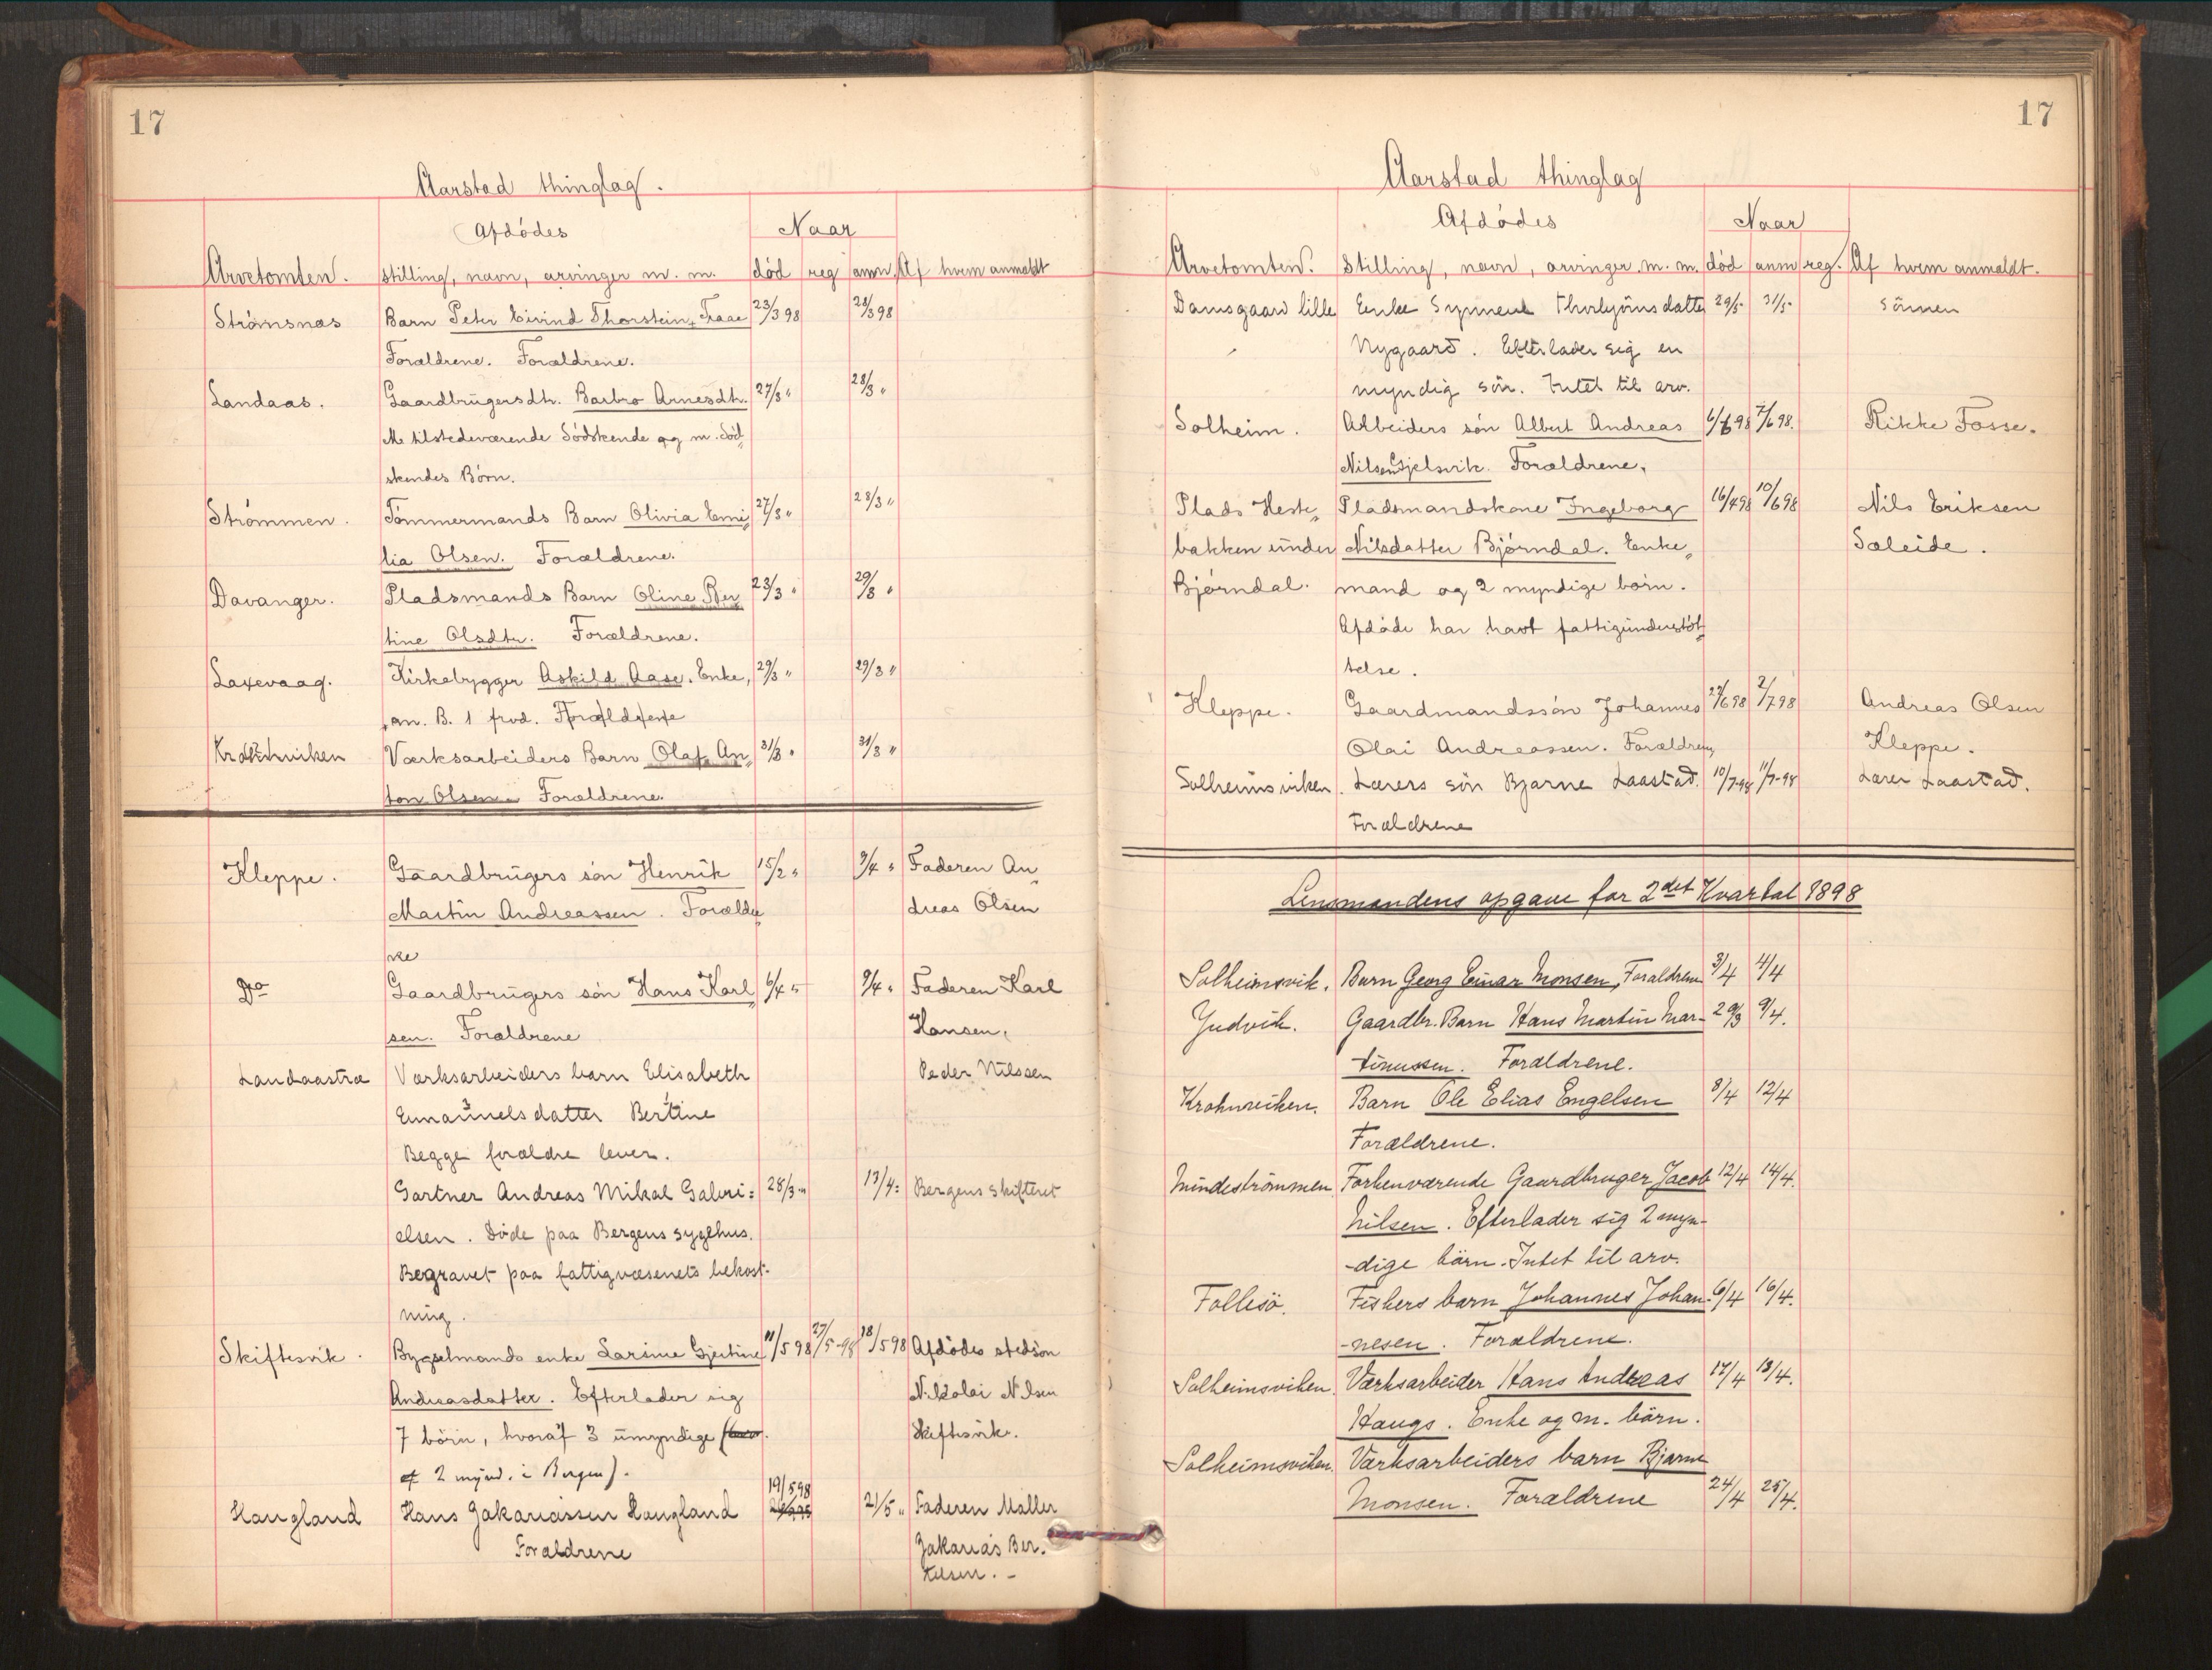 17
Aarstad thinglag.
Afdödes
Naar
Arvetomten. stilling, navn, arvinger m. m. död reg anm. Af hvem anmeldt
Strömsnæs Barn Peter Eivind Thorstein, Traae 23/3 98 28/3 98
Forældrene. Forældrene.
Landaas. Gaardbrugersdtr. Barbro Arnesdtr. 27/3 " 28/3 "
M. tilstedeværende Södskende og m. Söd„
skendes Börn.
Strömmen. Tömmermands Barn Olivia Emi„ 27/3 " 28/3 "
lia Olsen. Forældrene.
Davanger. Pladsmands Barn Oline Ber„ 23/3 " 29/3 "
tine Olsdtr. Forældrene.
Laxevaag. Kirkebygger Askild Aase. Enke, 29/3 " 29/3 "
an. B. 1 frvd. Forældrene
Krohnviken Værksarbeiders Barn Olaf An„ 31/3 " 31/3 "
ton Olsen. Forældrene.
Kleppe. Gaardbrugers sön Henrik 15/2 " 9/4 " Faderen An„
Martin Andreassen. Forældre dreas Olsen
ne
Do Gaardbrugers sön Hans Karl„ 6/4 " 9/4 " Faderen Karl
sen. Forældrene Hansen.
Landaastræ Værksarbeiders barn Elisabeth Peder Nilssen
Emanuelsdatter Bertine
Begge forældre lever.
Gartner Andreas Mikal Gabri= 28/3 " 13/4 = Bergens skifteret
elsen. Döde paa Bergens sygehus.
Begravet paa fattigvæsenets bekost-
ning.
Skiftesvik. Bygselmands enke Larsine Gjertine 11/5 98 27/5-98 18/5 98 Afdödes stedsön
Andreasdatter. Efterlader sig Nikolai Nilsen
7 börn, hvoraf 3 umyndige (hvor- Skiftesvik.
af 2 mynd. i Bergen).
19/5 98
Haugland Hans Zakariassen Haugland 21/5 " Faderen Møller
Forældrene Zakarias Ber-
telsen. -
17
Aarstad thinglag
Afdödes
Naar
Arvetomten. Stilling, navn, arvinger m. m. död anm reg. Af hvem anmeldt.
Damsgaard lille Enke Synneve Thorbjörnsdatter 29/5- 31/5- Sönnen
Nygaard. Efterlader sig en
myndig sön. Intet til arv.
Solheim. Arbeiders sön Albert Andreas 6/6 98 7/6 98. Rikke Fosse.
Nilsen Gjelsvik. Forældrene.
Plads Heste„ Pladsmandskone Ingeborg 16/4 98 10/6 98 Nils Eriksen
bakken under Nilsdatter Björndal. Enke„ Sæleide.
Björndal. mand og 2 myndige börn.
Afdöde har havt fattigunderstöt„
telse.
Kleppe. Gaardmandssön Johannes 29/6 98 2/7 98 Andreas Olsen
Olai Andreassen. Forældrene Kleppe.
Solheimsviken. Lærers sön Bjarne Laastad. 10/7-98 11/7-98 Lærer Laastad.
Forældrene
Lensmandens opgave for 2det Kvartal 1898
Solheimsvik. Barn Georg Einar Monsen, Forældrene 3/4 4/4
Judvik. Gaardbr. Barn Hans Martin Mar- 29/3 9/4.
tinussen. Forældrene.
Krohnviken. Barn Ole Elias Engelsen 8/4 12/4
Forældrene.
Mindeströmmen Forhenværende Gaardbruger Jacob 12/4 14/4.
Nilsen. Efterlader sig 2 myn-
-dige börn. Intet til arv.
Follesö. Fiskers barn Johannes Johan- 6/4 16/4.
-nesen. Forældrene.
Solheimsviken. Værksarbeider Hans Andreas 17/4 18/4.
Haugs. Enke og m. börn.
Solheimsviken. Værksarbeiders barn Bjarne
Monsen. Forældrene 24/4 25/4.